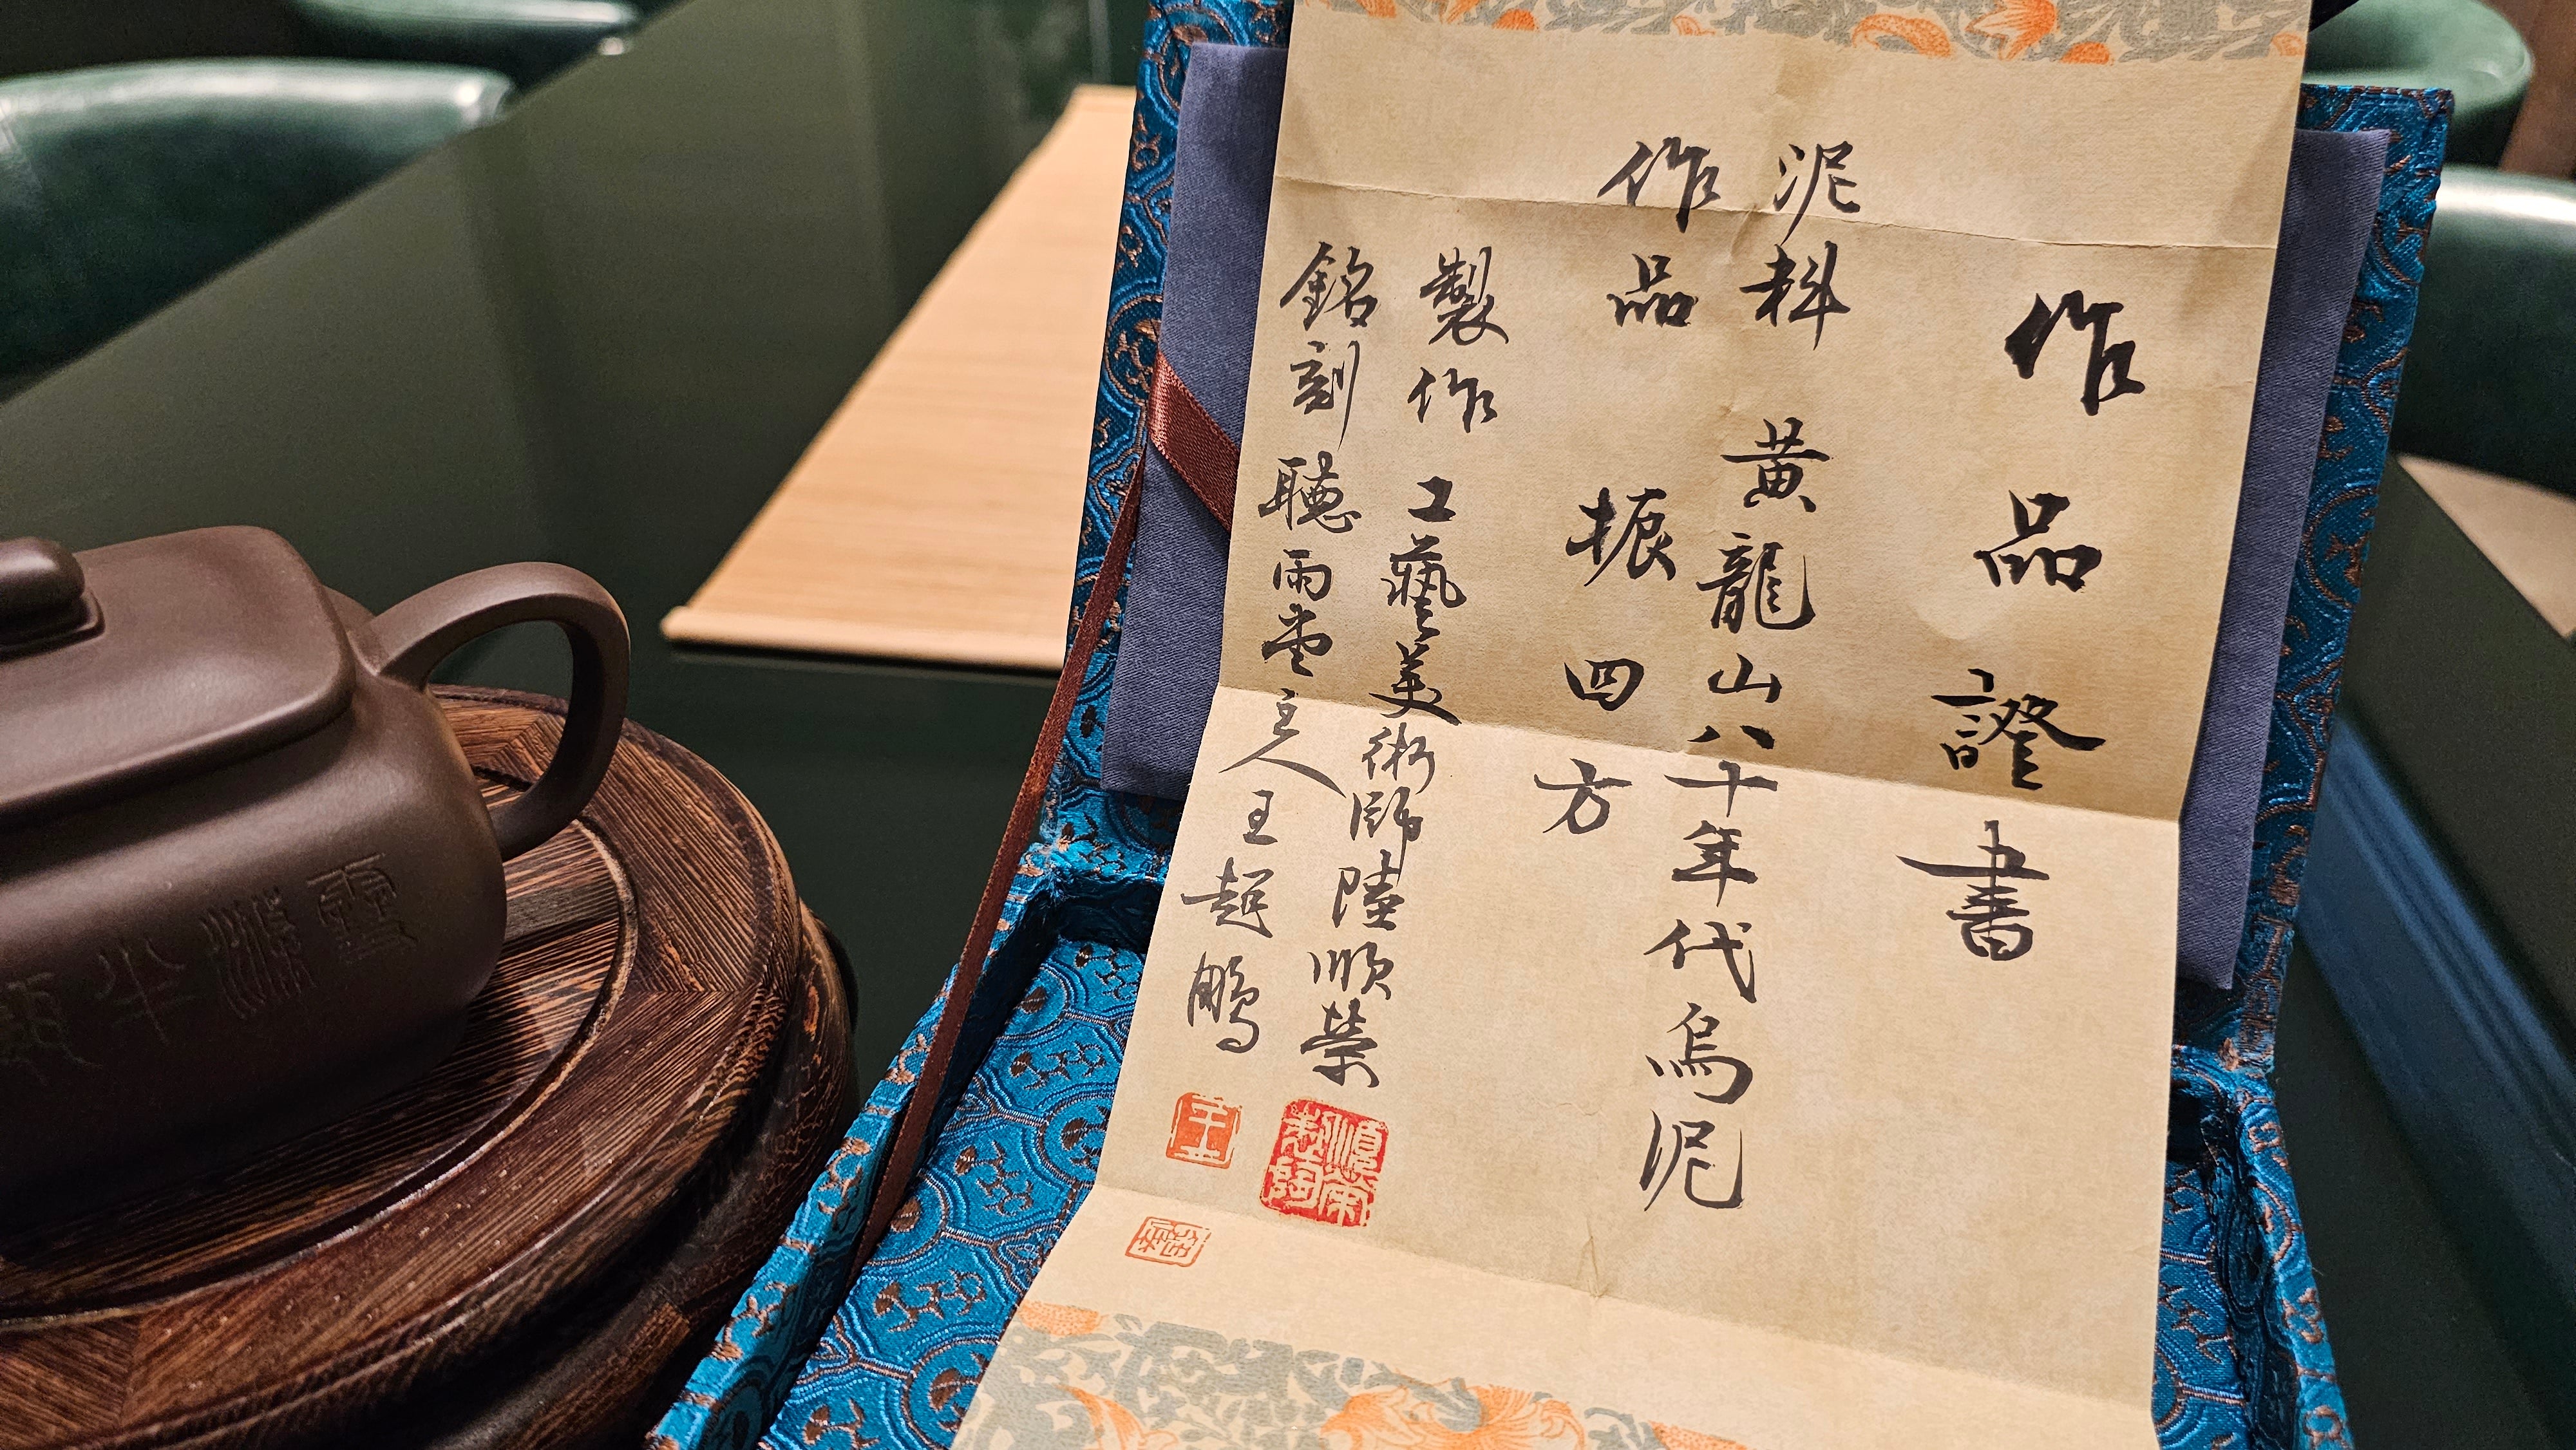 作品證書
泥料 黄龍山八十年代烏泥
作品 振四方
製作 工藝美術師陸順榮
銘刻 聽雨堂主人王超鵬
順榮製陶
王
雪灘半顧